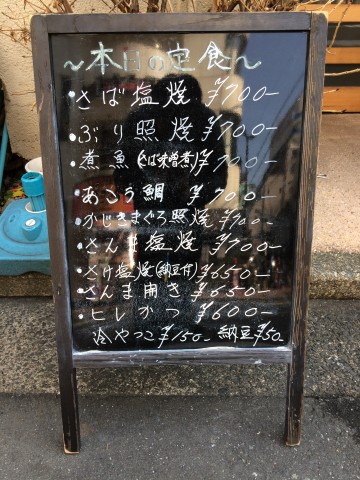 ～本日の定食～
・さば塩焼 ¥700-
・ぶり照焼 ¥700-
・煮魚(さば味噌煮) ¥700-
・あこう鯛 ¥700-
・かじきまぐろ照焼 ¥700-
・さんま塩焼 ¥700-
・さけ塩焼(納豆付) ¥650-
・さんま開き ¥650-
・ヒレかつ ¥600-
冷やっこ ¥150- 納豆 ¥50-